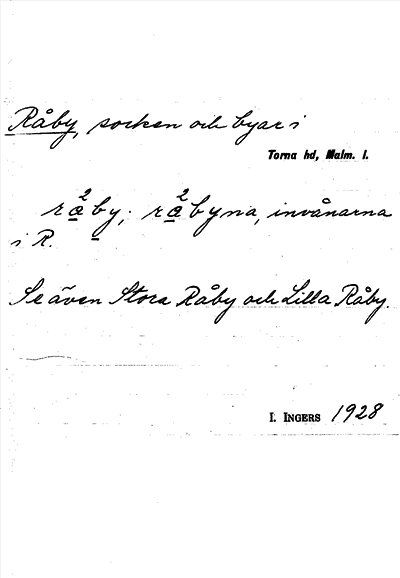 Råby, socken och byar i
Torna hd, Malm. l.
råby; råbyna, invånarna
i R.
Se även Stora Råby och Lilla Råby.
I. INGERS 1928